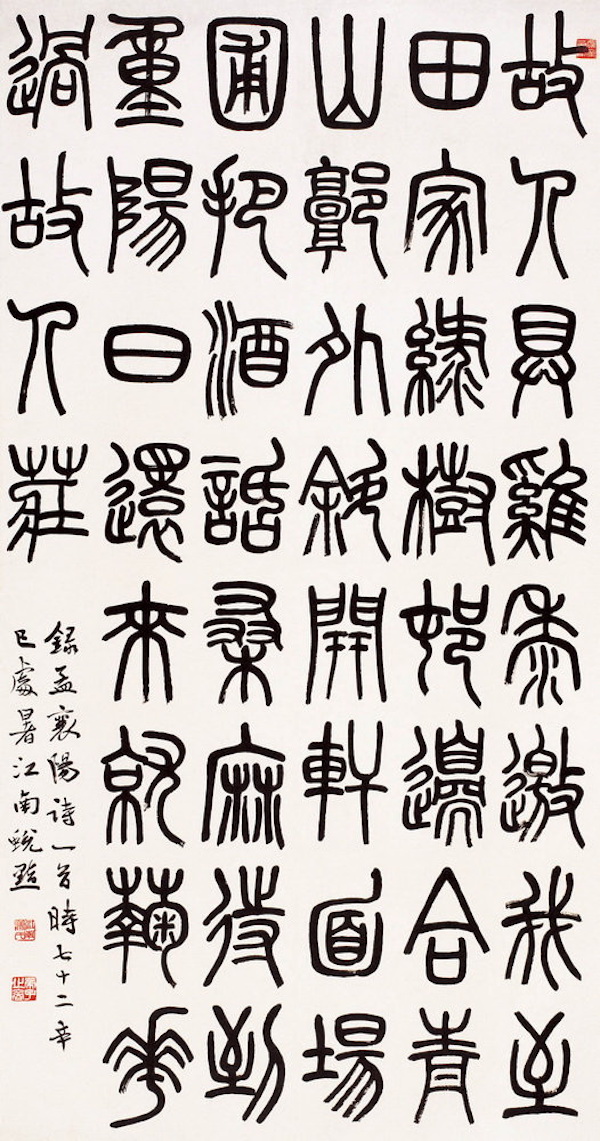 故人具雞黍邀我至
田家綠樹邨邊合青
山郭外斜開軒面場
圃把酒話桑麻待到
重陽日還來就蘜花
過故人莊
錄孟襄陽詩一首時七十二辛
巳處暑江南蛻黯